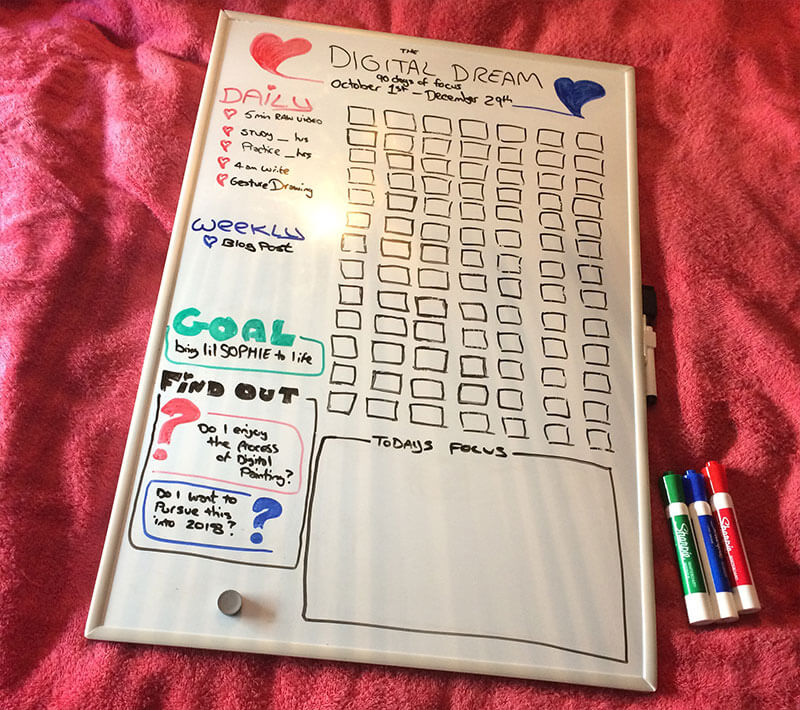 THE
DIGITAL DREAM
90 days of focus
October 1st - December 29th
DAILY
5 min RAW VIDEO
STUDY __ hrs
Practice __ hrs
4am write
Gesture Drawing
WEEKLY
Blog Post
GOAL
bring lil SOPHIE to life
FIND OUT
? Do I enjoy
the Process
of Digital
Painting?
Do I want to
Pursue this
into 2018? ?
TODAYS FOCUS
Sharpie
Sharpie
Sharpie